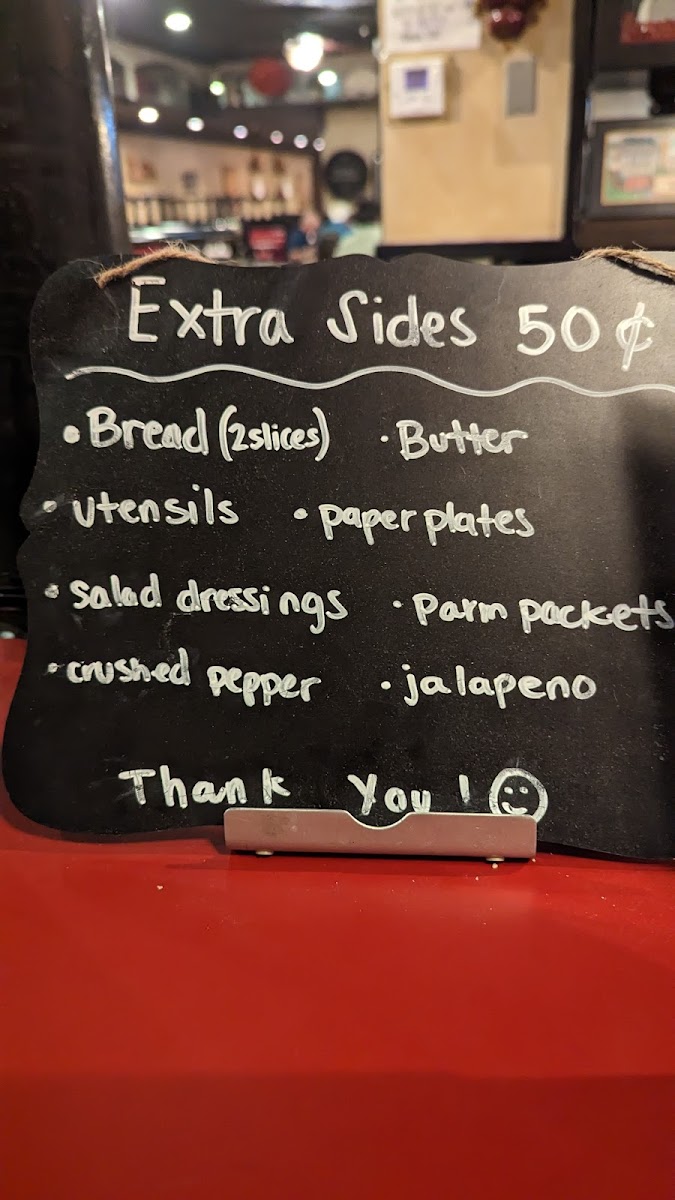 Extra Sides 50¢
• Bread (2slices) • Butter
• utensils • paper plates
• salad dressings • parm packets
• crushed pepper • jalapeno
Thank You!